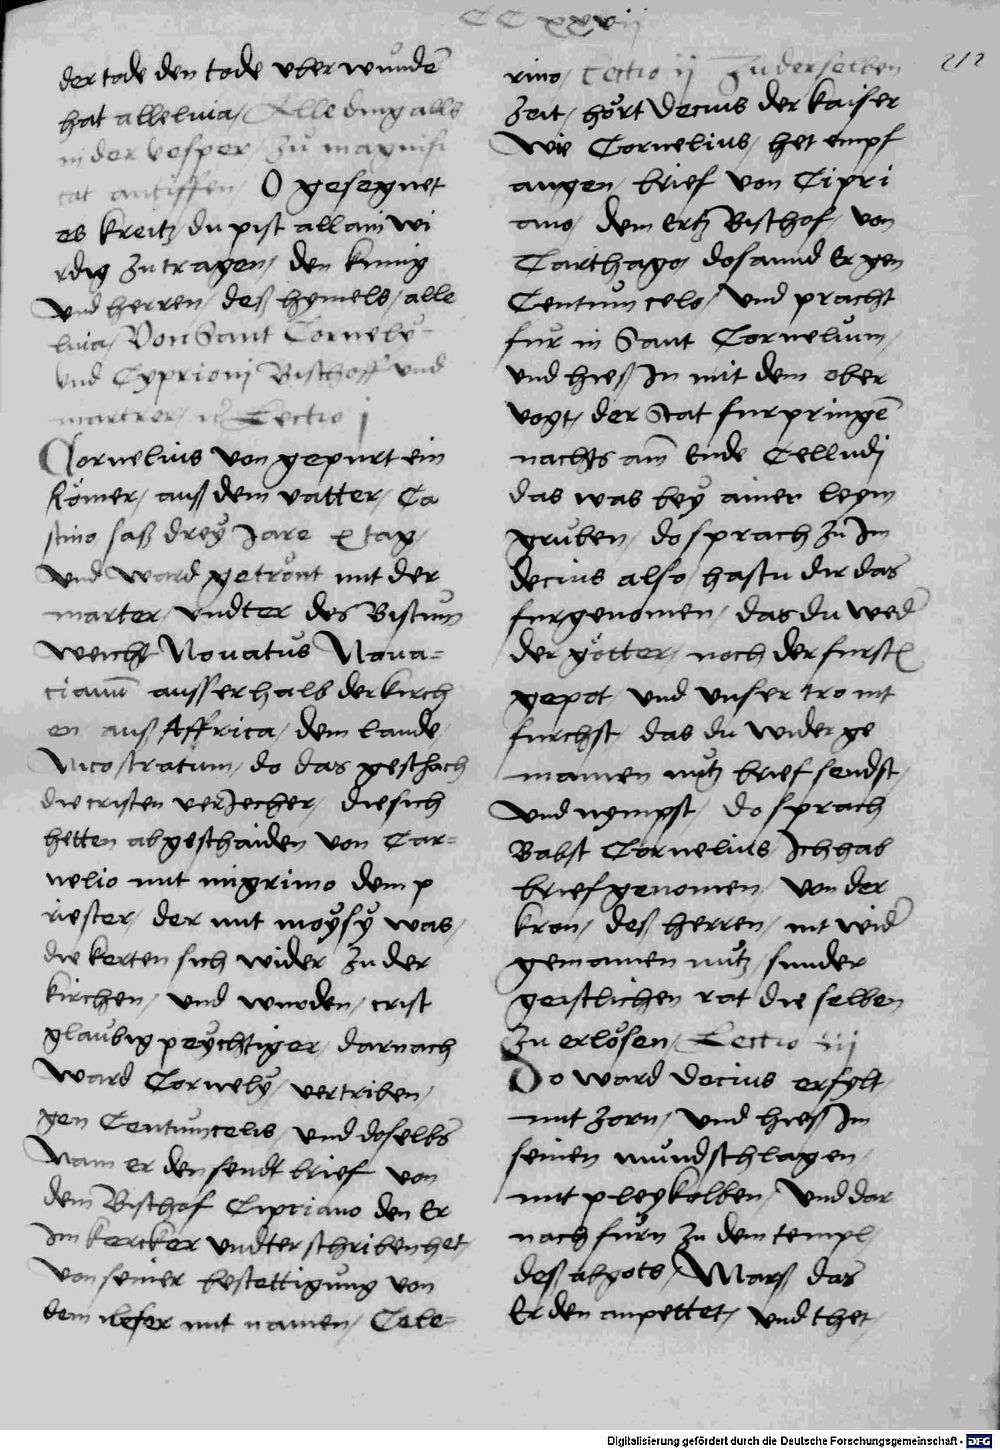 CCxxvij
212
der tode den tode vber wunde͂
hat alleluia / Alle ding alls
in der vesper / Zu magnifi
cat antiffen / O gesegnet
es kreitz du pist allain wi
rdig zu tragen / den kunig
vnd herren / deß hymels / alle
luia / Von Sant Cornely
vnd Cyprioni Bischoff vnd
martrer / Lectio j
Cornelius von gepurt ein
Römer / auß dem vatter / Ca
stino saß drey Jare x tag /
vnd ward getrönt mit der
marter / vndter des Bistum
weicht Nouatus Noua=
cianu͂ ausserhalb der kirch
en / auß Affrica / dem lande /
Nicostratum / do das geschach
die cristen verJecher / die sich
hetten abgeschaiden von Cor=
nelio mit migrimo dem p
riester / der mit moysy was /
die kerten sich wider zu der
kirchen / vnd wurden / crist
glaubig peychtiger / darnach
ward Cornely / vertriben /
gen Centumcelis / vnd doselbs
nam er den sendt brief von
dem Bischof Cipriano den Er
Im kercker vndterschriben het /
von seiner bestettigung von
dem leser mit namen / Cele=
rino / Lectio ij Zu derselben
Zeit / hört Decius der kaiser
wie Cornelius / het empf
angen / brief von Cipri
ano / dem Ertz Bischof / von
Carthago / dosannd Er gen
Centum celo / vnd pracht
fur in Sant Cornelium /
vnd hieß In mit dem ober
vogt / der Stat furpringe͂
nachts am Ende Celludj
das was bey ainer leym
gruben / do sprach zu Im
decius also / hastu dir das
furgenomen / das du wed͛
der götter / noch der furstl
gepot / vnd vnser tro nit
furchst das du wider ge
mainen nutz brief sendst /
vnd nympst / do sprach
Babst Cornelius Ich hab
brief genomen / von der
kron / deß herren / nit wid͛
gemainen nutz / sunder
geistlichen rat die selben
zu erlösen / Lectio iij
Do ward Decius erfylt /
mit zorn / vnd hieß Im
seinen mund schlagen /
mit pleykolben / vnd dar
nach furn zu dem templ /
deß abgots / Marß das
Er den anpettet / vnd thet /
Digitalisierung gefördert durch die Deutsche Forschungsgemeinschaft - DFG